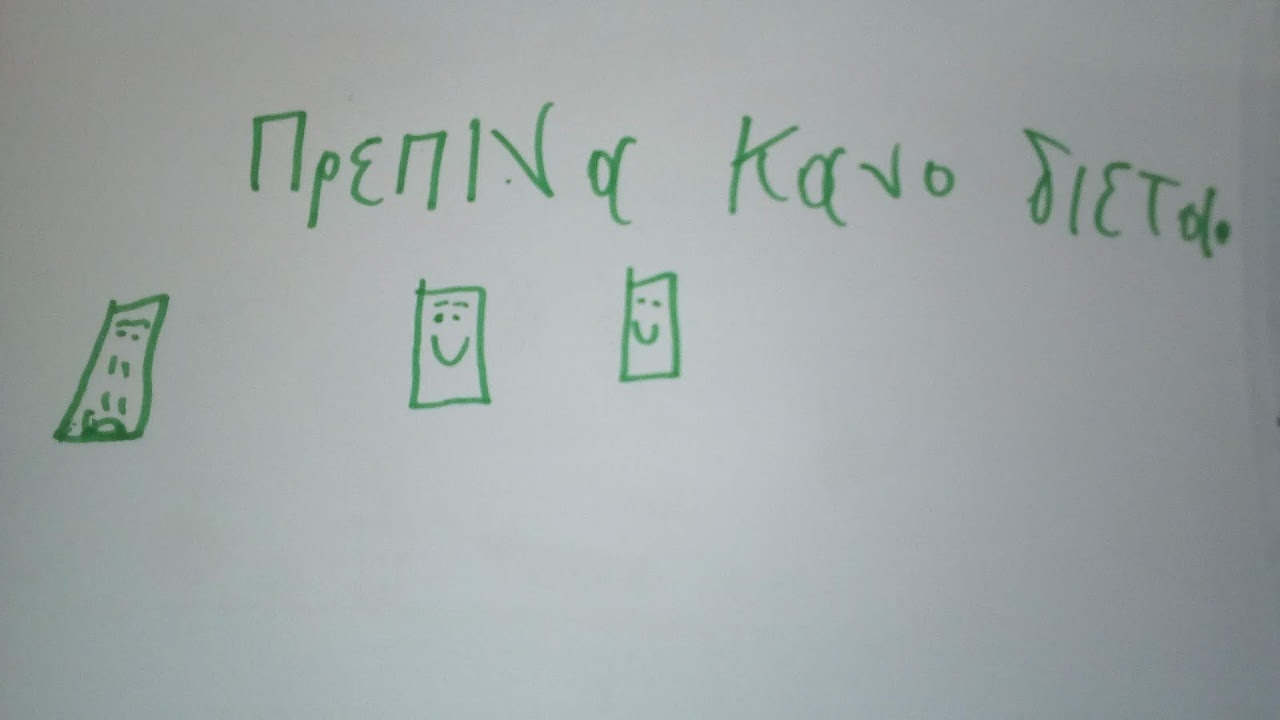 ΠρεπιΝα κανο διετα.